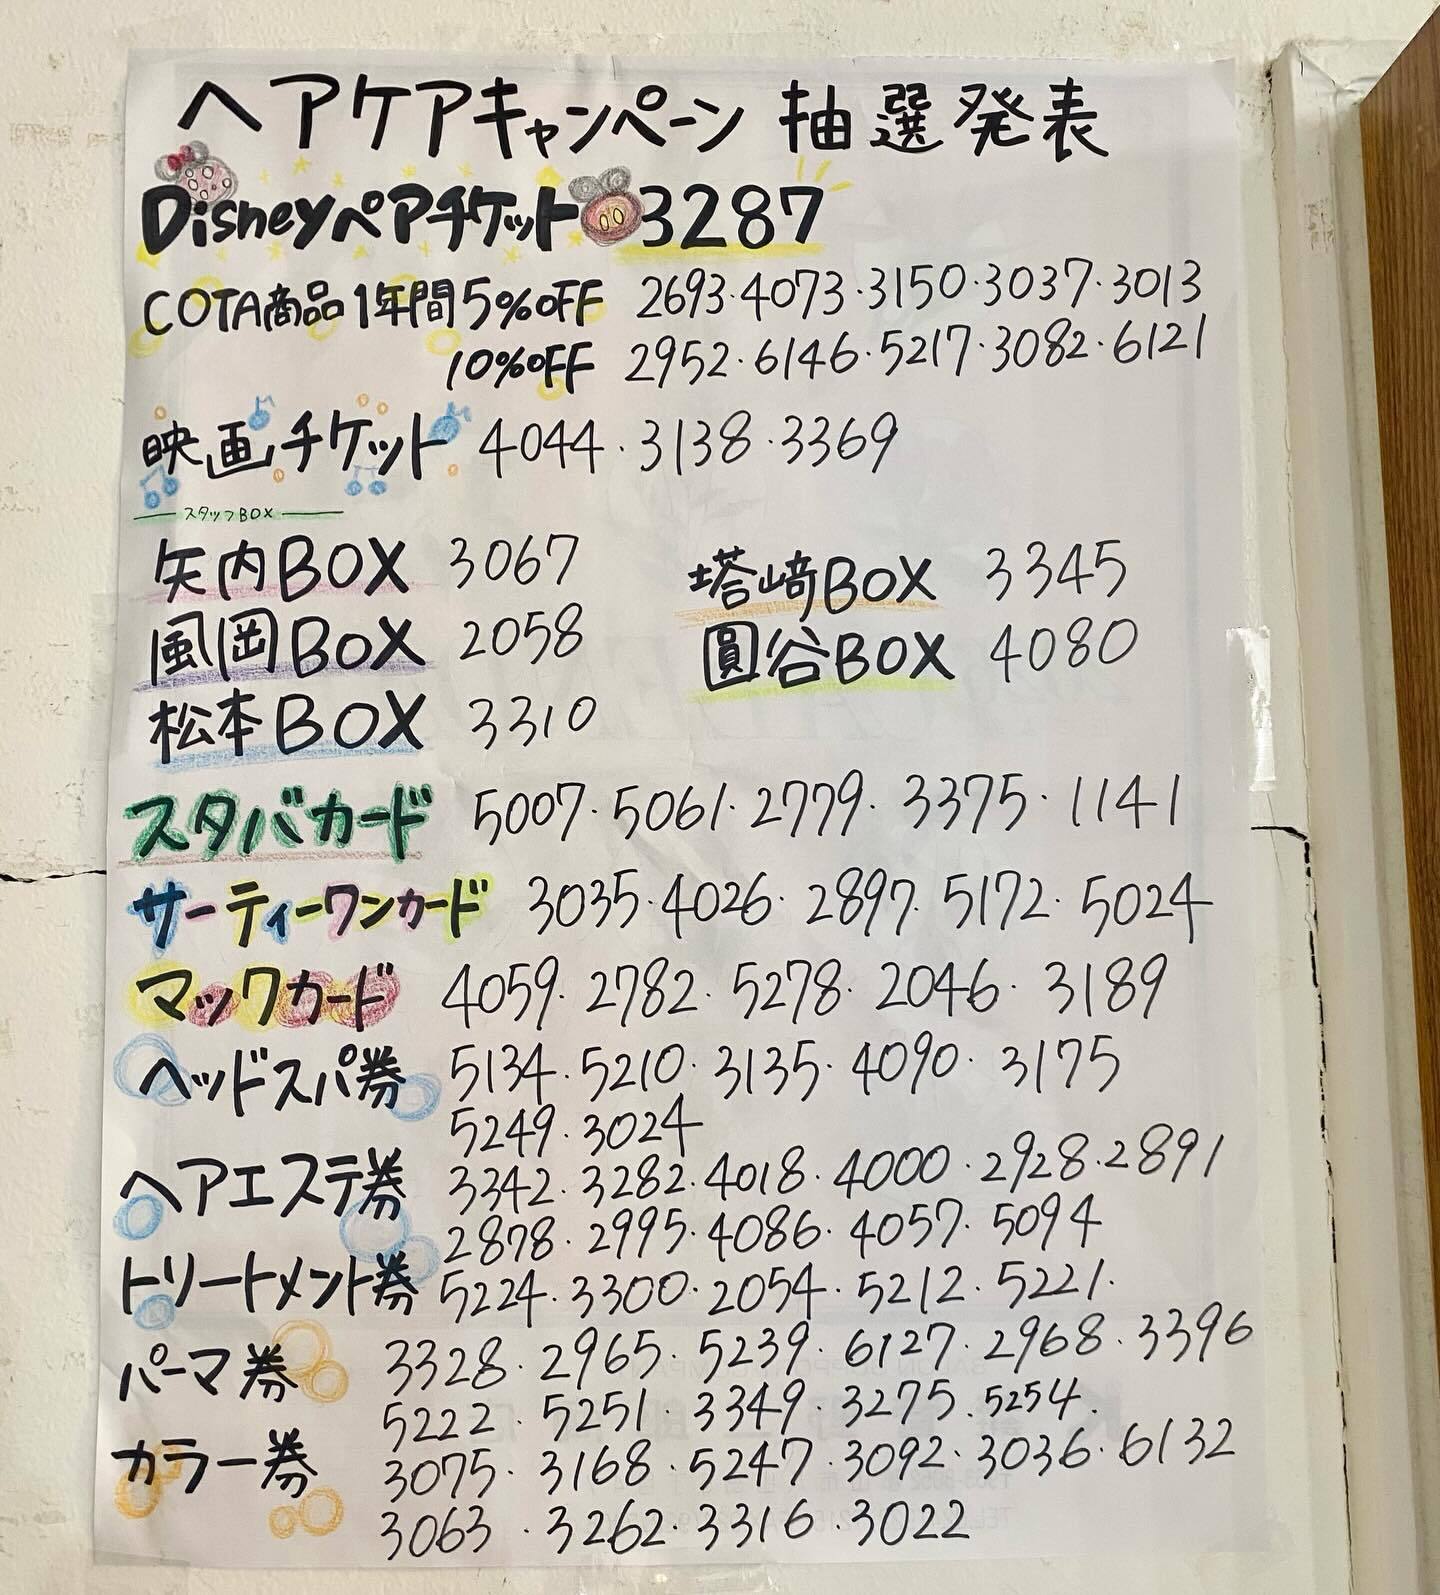 ヘアケアキャンペーン 抽選発表
Disneyペアチケット 3287
COTA商品1年間5%OFF 2693・4073・3150・3037・3013
10%OFF 2952・6146・5217・3082・6121
映画チケット 4044・3138・3369
スタッフBOX
矢内BOX 3067 塔﨑BOX 3345
風岡BOX 2058 圓谷BOX 4080
松本BOX 3310
スタバカード 5007・5061・2779・3375・1141
サーティーワンカード 3035・4026・2897・5172・5024
マックカード 4059・2782・5278・2046・3189
ヘッドスパ券 5134・5210・3135・4090・3175
5249・3024
ヘアエステ券 3342・3282・4018・4000・2928・2891
2878・2995・4086・4057・5094
トリートメント券 5224・3300・2054・5212・5221・
パーマ券 3328・2965・5239・6127・2968・3396
5222・5251・3349・3275・5254・
カラー券 3075・3168・5247・3092・3036・6132
3063・3262・3316・3022